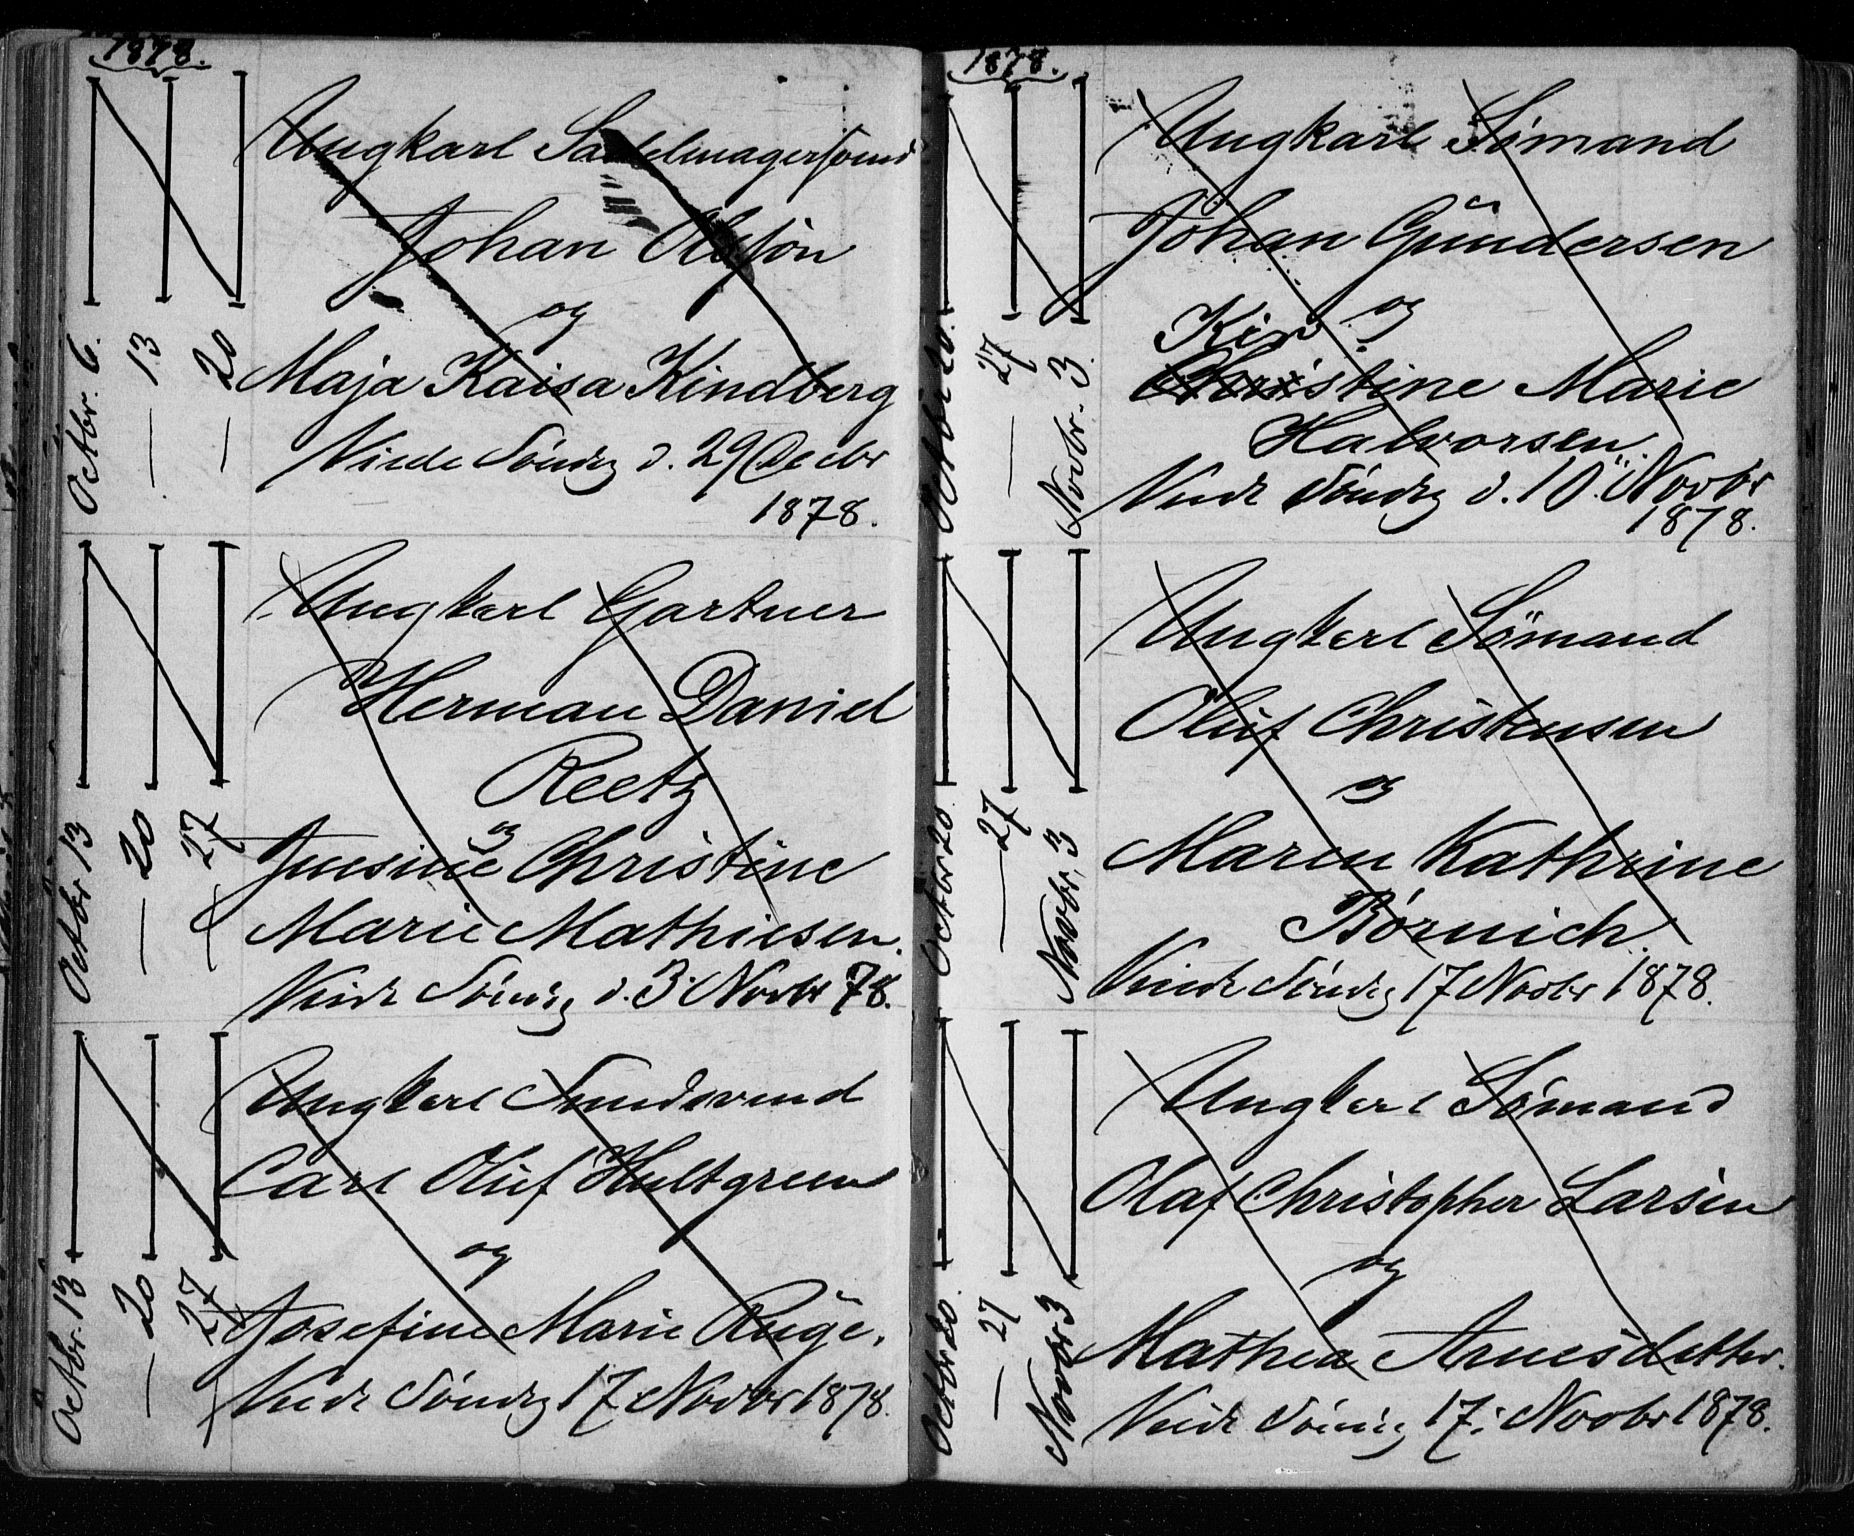 1878.
Octbr. 6.
— 13
— 20
Ungkarl Sadelmagersvend
Johan Olsson
og
Maja Kaisa Kindberg
Viede Søndg d. 29 Decbr
1878.
Octbr 13
— 20
— 27
Ungkarl Gartner
Herman Daniel
Reetz
og
Jensine Christine
Marie Mathiesen.
Viede Søndg d. 3 Novbr 78.
Octbr. 13
— 20
— 27
Ungkarl
Carl Oluf Hultgreen
og
Josefine Marie Ruge.
Viede Søndg 17 Novbr 1878.
1878.
Octbr 20.
— 27
Novbr. 3.
Ungkarl Sømand
Johan Gundersen
og
Kir
Christine Marie
Halvorsen.
Viede Søndg d. 10 Novbr
1878.
Octbr 20
— 27
Novbr. 3
Ungkarl Sømand
Oluf Christensen
og
Maren Kathrine
Børnich.
Viede Søndg 17 Novbr 1878.
Octbr 20.
— 27
Novbr 3
Ungkarl Sømand
Olaf Christopher Larsen
og
Mathea Arnesdatter.
Viede Søndg 17. Novbr 1878.